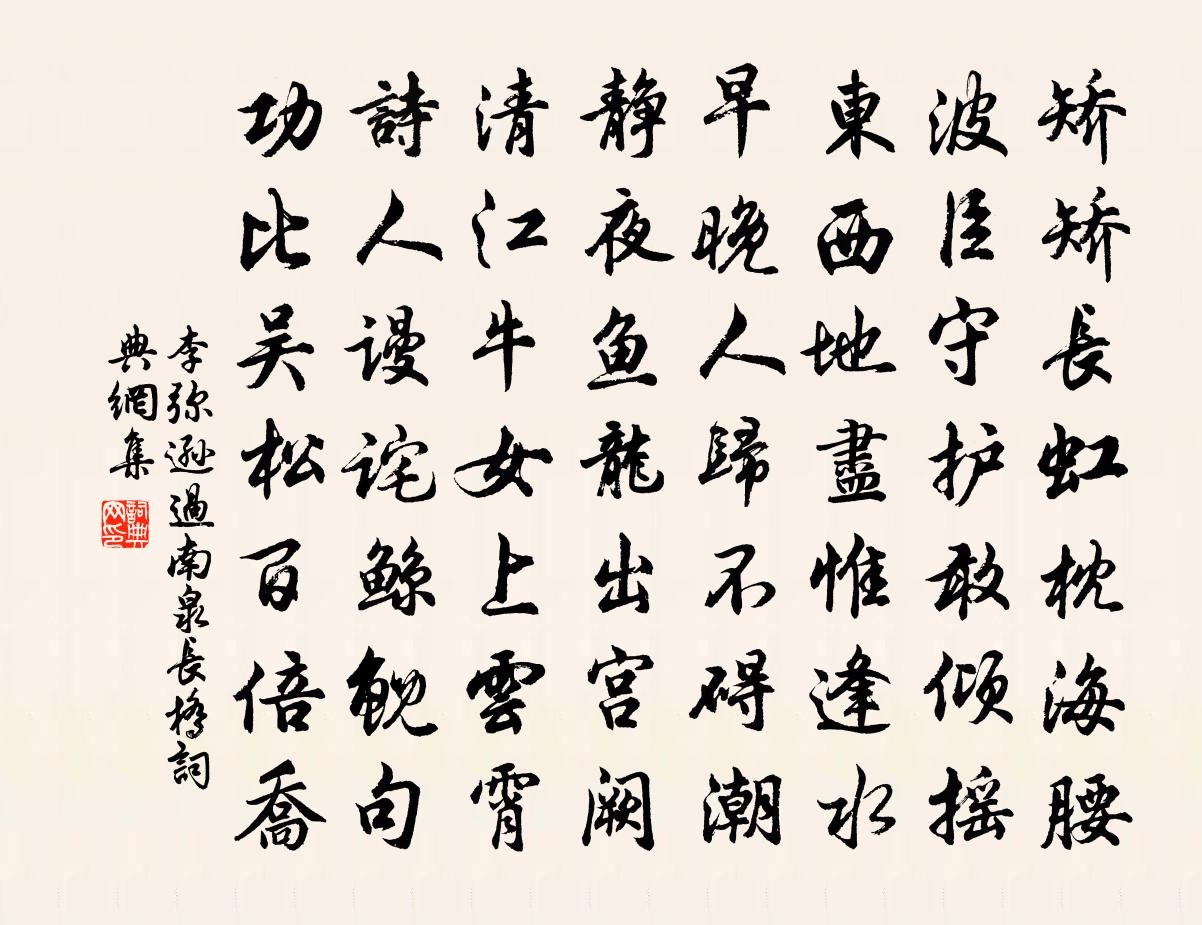 矫矫長虹枕海腰
波臣守护敢倾摇
東西地盡惟逢水
早晚人歸不碍潮
静夜鱼龍出宫阙
清江牛女上雲霄
詩人谩诧鲸鲵句
功比吴松百倍喬
李弥逊過南泉長橋詞
典網集
詞典网印